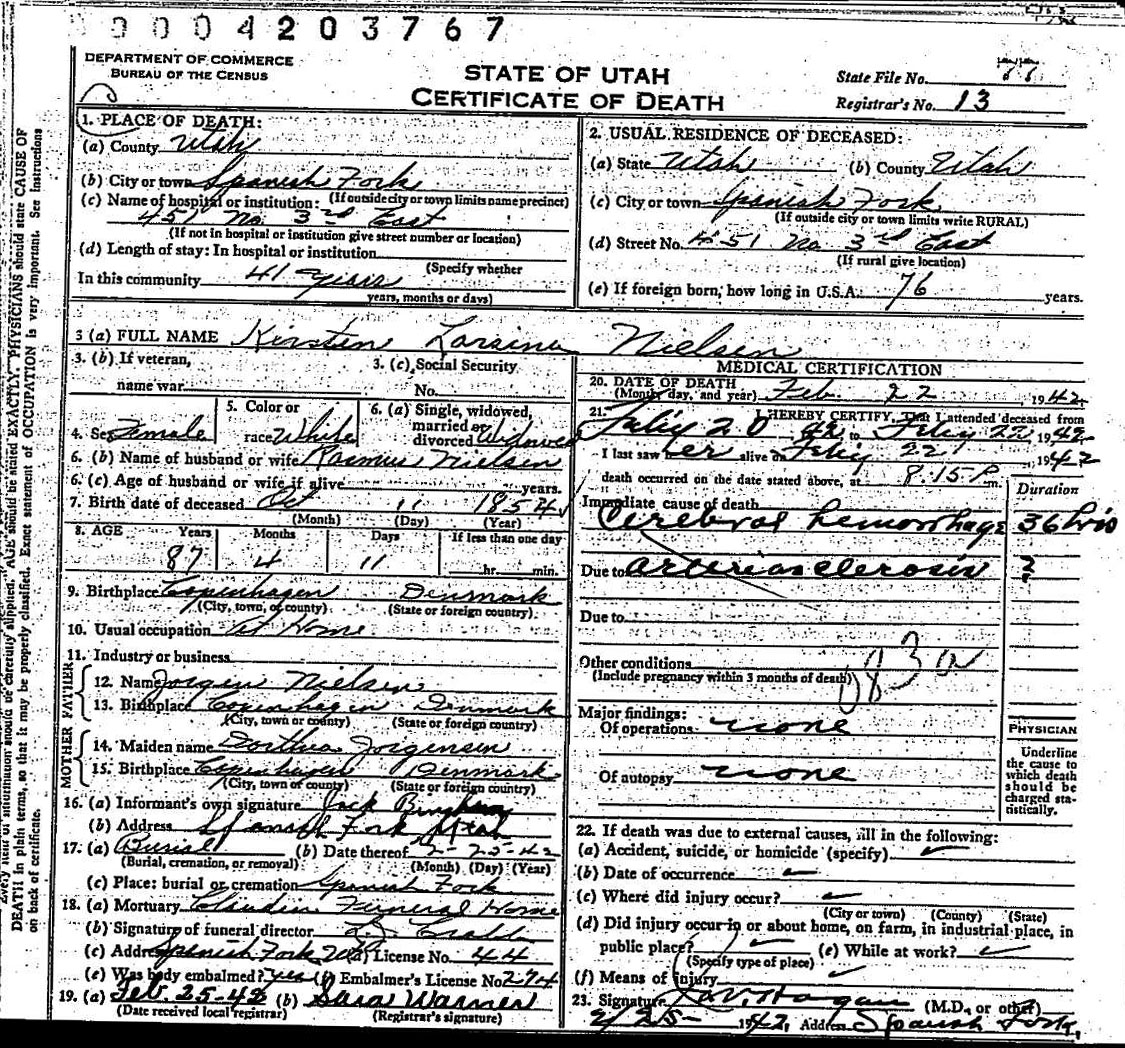 0004203767
DEPARTMENT OF COMMERCE
BUREAU OF THE CENSUS
STATE OF UTAH
CERTIFICATE OF DEATH
State File No. 77
Registrar's No. 13
1. PLACE OF DEATH:
(a) County Utah
(b) City or town Spanish Fork
(If outside city or town limits name precinct)
(c) Name of hospital or institution:
451 No. 3rd East
(If not in hospital or institution give street number or location)
(d) Length of stay: In hospital or institution
(Specify whether
In this community 41 years
years, months or days)
2. USUAL RESIDENCE OF DECEASED:
(a) State Utah (b) County Utah
(c) City or town Spanish Fork
(If outside city or town limits write RURAL)
(d) Street No. 451 No 3rd East
(If rural give location)
(e) If foreign born, how long in U.S.A. 76 years.
3 (a) FULL NAME Kirsten Larsine Nielsen
3. (b) If veteran,
name war
3. (c) Social Security
No.
4. Sex Female
5. Color or
race White
6. (a) Single, widowed,
married or
divorced Widowed
6. (b) Name of husband or wife Rasmus Nielsen
6. (c) Age of husband or wife if alive years.
7. Birth date of deceased Oct 11 1854
(Month) (Day) (Year)
8. AGE Years Months Days If less than one day
87 4 11 hr. min.
9. Birthplace Copenhagen Denmark
(City, town, or county) (State or foreign country)
10. Usual occupation At Home
11. Industry or business
FATHER
12. Name Jorgen Nielsen
13. Birthplace Copenhagen Denmark
(City, town or county) (State or foreign country)
MOTHER
14. Maiden name Dorthea Jorgensen
15. Birthplace Copenhagen Denmark
(City, town or county) (State or foreign country)
16. (a) Informant's own signature Jack
(b) Address Spanish Fork Utah
17. (a) Burial (b) Date thereof 2-25-42
(Burial, cremation, or removal) (Month) (Day) (Year)
(c) Place: burial or cremation Spanish Fork
18. (a) Mortuary Claudin Funeral Home
(b) Signature of funeral director
(c) Address Spanish Fork (d) License No. 44
(e) Was body embalmed? yes (f) Embalmer's License No 294
19. (a) Feb. 25-42 (b) Sara Warner
(Date received local registrar) (Registrar's signature)
MEDICAL CERTIFICATION
20. DATE OF DEATH
(Month, day, and year) Feb. 22, 1942
21. I HEREBY CERTIFY, That I attended deceased from
Feby 20 42 to Feby 22 1942
I last saw her alive on Feby 22 1942
death occurred on the date stated above, at 8:15 P m.
Duration
Immediate cause of death
Cerebral hemorrhage 36 hrs
Due to arteriosclerosis ?
Due to
Other conditions
(Include pregnancy within 3 months of death)
083 a
Major findings:
Of operations none
Of autopsy none
PHYSICIAN
Underline
the cause to
which death
should be
charged sta-
tistically.
22. If death was due to external causes, fill in the following:
(a) Accident, suicide, or homicide (specify)
(b) Date of occurrence
(c) Where did injury occur?
(City or town) (County) (State)
(d) Did injury occur in or about home, on farm, in industrial place, in
public place? (e) While at work?
(Specify type of place)
(f) Means of injury
23. Signature Hagan (M.D. or other)
2/25- 1942 Address Spanish Fork,
Every item of information should be carefully supplied. AGE should be stated EXACTLY. PHYSICIANS should state CAUSE OF
DEATH in plain terms, so that it may be properly classified. Exact statement of OCCUPATION is very important. See instructions
on back of certificate.